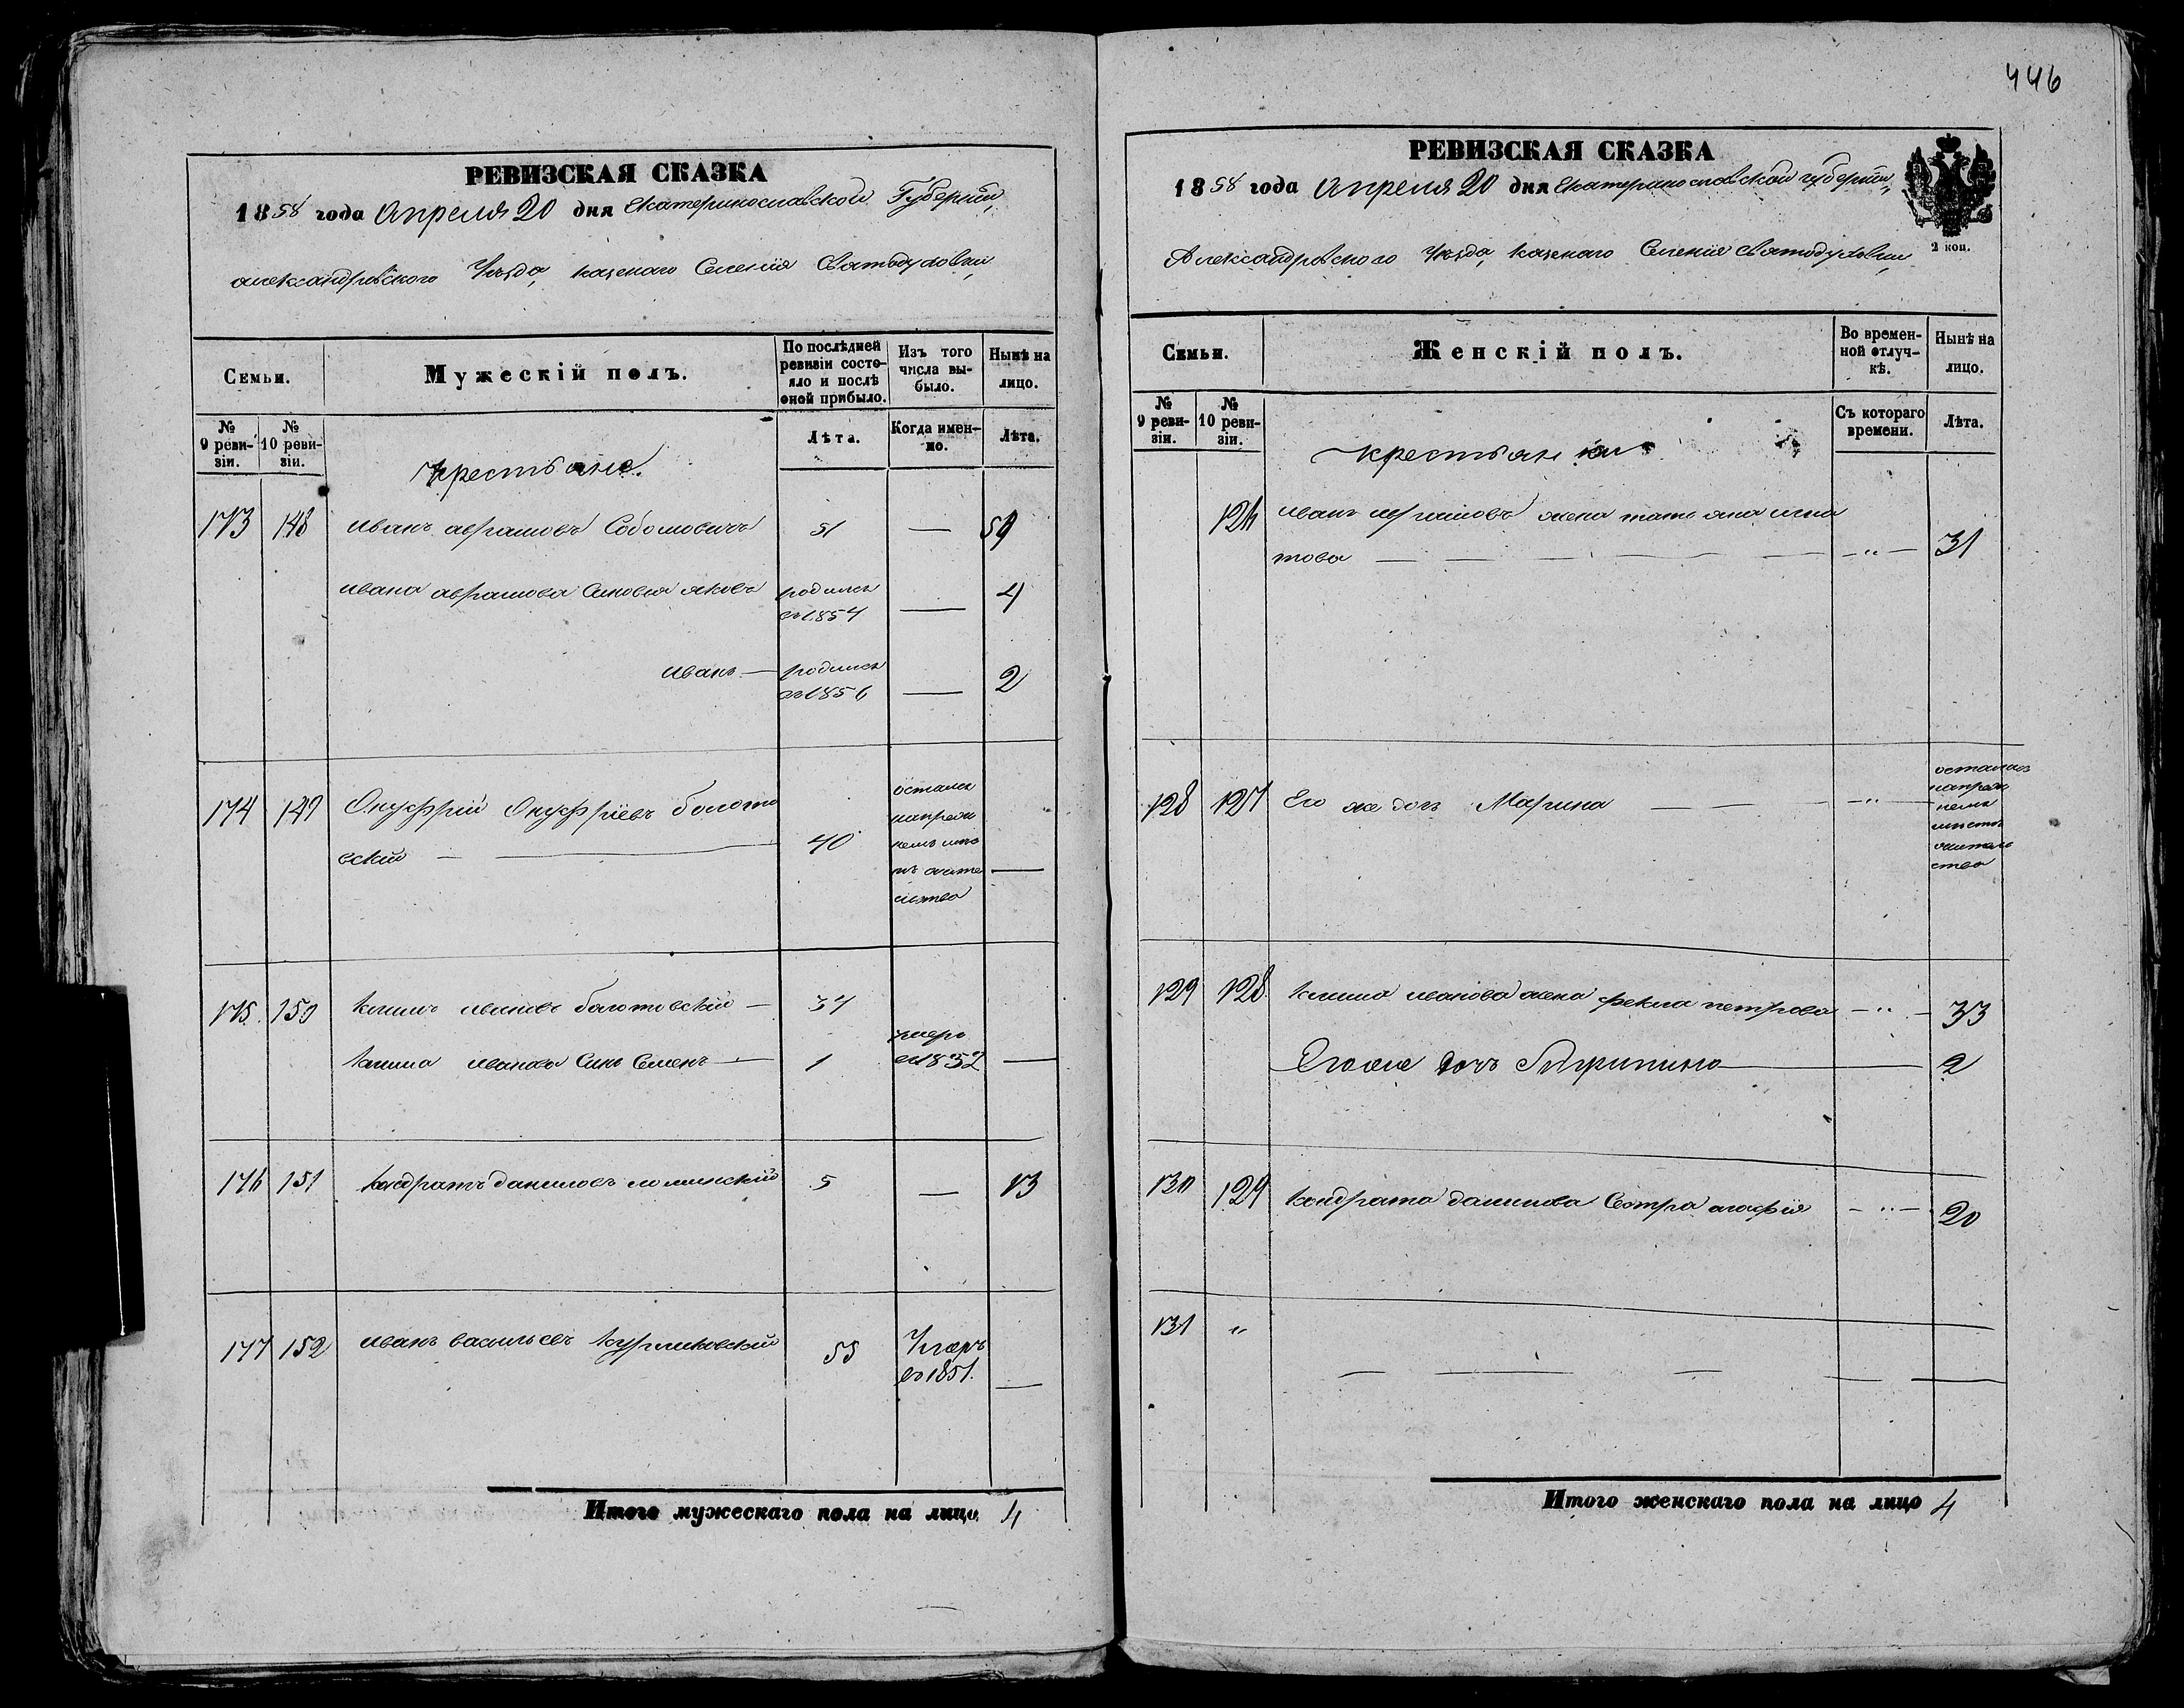 446
РЕВИЗСКАЯ СКАЗКА
1858 года Апреля 20 дня Екатеринославской Губернии,
Александровского Уѣзда, казенаго Селенія Святодуховки,
Семьи.
Мужескій полъ.
По послѣдней ревизіи состояло и послѣ оной прибыло.
Изъ того числа выбыло.
Нынѣ на лицо.
№ 9 ревизіи.
№ 10 ревизіи.
Лѣта.
Когда именно.
Лѣта.
крестьяне.
173 148 иванъ аврамовъ 51 —
ивана аврамова Сыновья яковъ родился въ 1854 — 4
иванъ — родился въ 1856 — 2
174 149 Онуфрій Онуфріевъ болото
вскій — 40 —
остался
175 150 климъ ивановъ болотовскій —
клима иванова Сынъ Семенъ — 1 умеръ въ 1852 —
176 151 кондратъ даниловъ 5 — 13
177 152 иванъ васильевъ 55 Умеръ
въ 1851. —
Итого мужескаго пола на лицо 4
РЕВИЗСКАЯ СКАЗКА
1858 года Апреля 20 дня Екатеринославской губерніи,
Александровского Уѣзда, казенаго Селенія Святодуховки,
2 коп.
Семьи.
Женскій полъ.
Во временной отлучкѣ.
Нынѣ на лицо.
№ 9 ревизіи.
№ 10 ревизіи.
Съ котораго времени.
Лѣта.
крестьянки
126 жена татьяна игна
това — — — — — „ — 31
128 127 Его же дочь Марина — — — „ —
осталась
напреж
немъ
мѣстѣ
жительс
ства
129 128 клима иванова жена фекла петрова — „ — 33
Егоже дочь — 2
130 129 кондрата данилова Сестра агафія — „ — 20
131 „
— — — — —
Итого женскаго пола на лицо 4